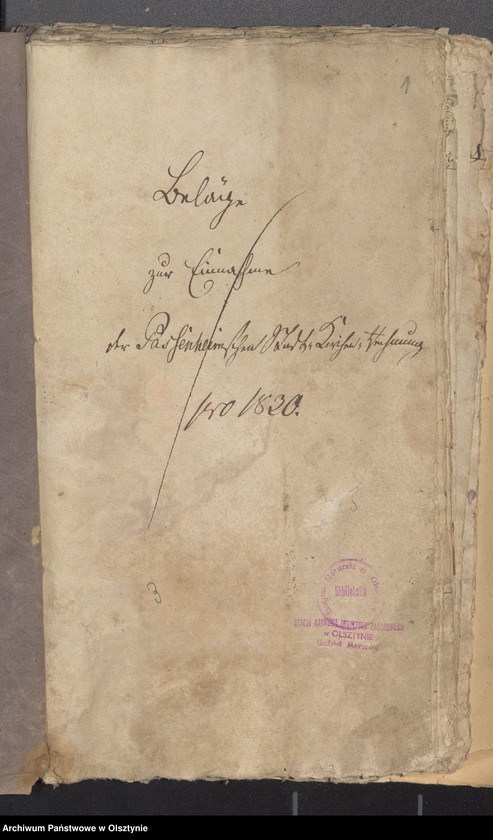 1
Beläge
zur Einnahme
der Passenheimschen Stadt-Kirchen-Rechnung
pro 1830.
Biblioteka
STACJA NAUKOWA
w OLSZTYNIE
Archiwum Państwowe w Olsztynie